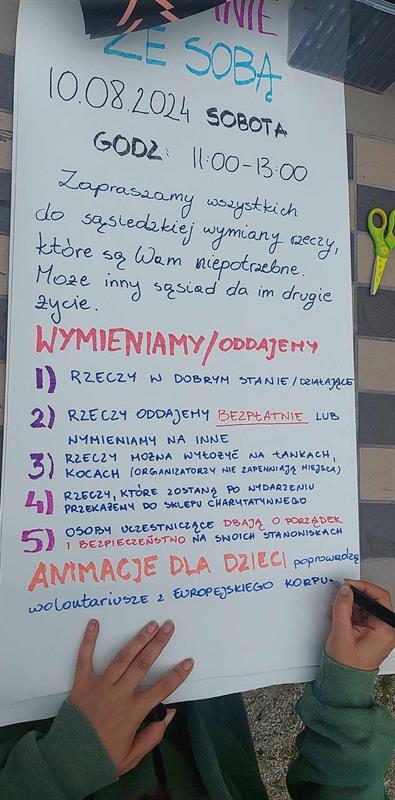 ZE SOBĄ
10.08.2024 SOBOTA
GODZ: 11:00-13:00
Zapraszamy wszystkich
do sąsiedzkiej wymiany rzeczy,
które są Wam niepotrzebne.
Może inny sąsiad da im drugie
życie.
WYMIENIAMY/ODDAJEMY
1) RZECZY W DOBRYM STANIE/DZIAŁAJĄCE
2) RZECZY ODDAJEMY BEZPŁATNIE LUB
WYMIENIAMY NA INNE
3) RZECZY MOŻNA WYŁOŻYĆ NA ŁAWKACH,
KOCACH (ORGANIZATORZY NIE ZAPEWNIAJĄ MIEJSCA)
4) RZECZY, KTÓRE ZOSTANĄ PO WYDARZENIU
PRZEKAŻEMY DO SKLEPU CHARYTATYWNEGO
5) OSOBY UCZESTNICZĄCE DBAJĄ O PORZĄDEK
I BEZPIECZEŃSTWO NA SWOICH STANOWISKACH
ANIMACJE DLA DZIECI poprowadzą
wolontariusze z EUROPEJSKIEGO KORPU